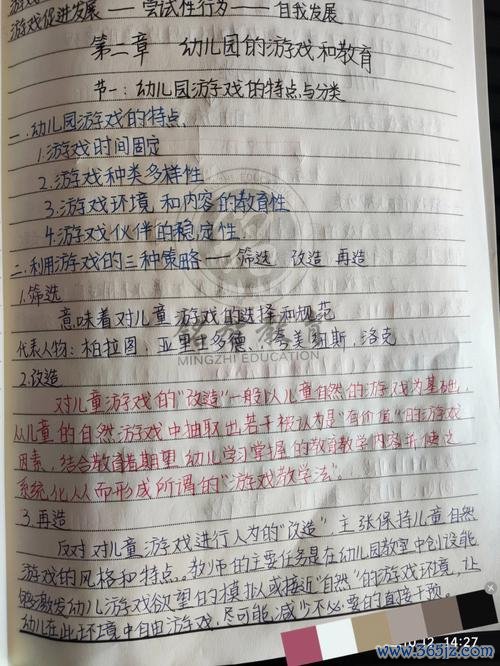 游戏促进发展 —— 尝试性行为 —— 自我发展
第二章 幼儿园的游戏和教育
节一：幼儿园游戏的特点与分类
一.幼儿园游戏的特点.
1.游戏时间固定
2.游戏种类多样性
3.游戏环境和内容的教育性
4.游戏伙伴的稳定性.
二.利用游戏的三种策略—— 筛选 改造 再造
1.筛选
意味着对儿童游戏的选择和规范
代表人物：柏拉图、亚里士多德、夸美纽斯、洛克
教育
MINGZHI EDUCATION
2.改造
对儿童游戏的"改造"一般以儿童自然的游戏为基础,
从儿童的自然游戏中抽取出若干被认为是"有价值"的游戏
因素，结合教育者期望幼儿学习掌握的教育教学内容并使之
系统化从而形成所谓的"游戏教学法"。
3.再造
反对对儿童游戏进行人为的"改造"，主张保持儿童自然
游戏的风格和特点。教师的主要任务是在幼儿园教室中创设能
够激发幼儿游戏欲望的模拟或接近"自然"的游戏环境，让
幼儿在此环境中自由游戏，尽可能减少不必要的直接干预。
12 14:27
www.365jz.com